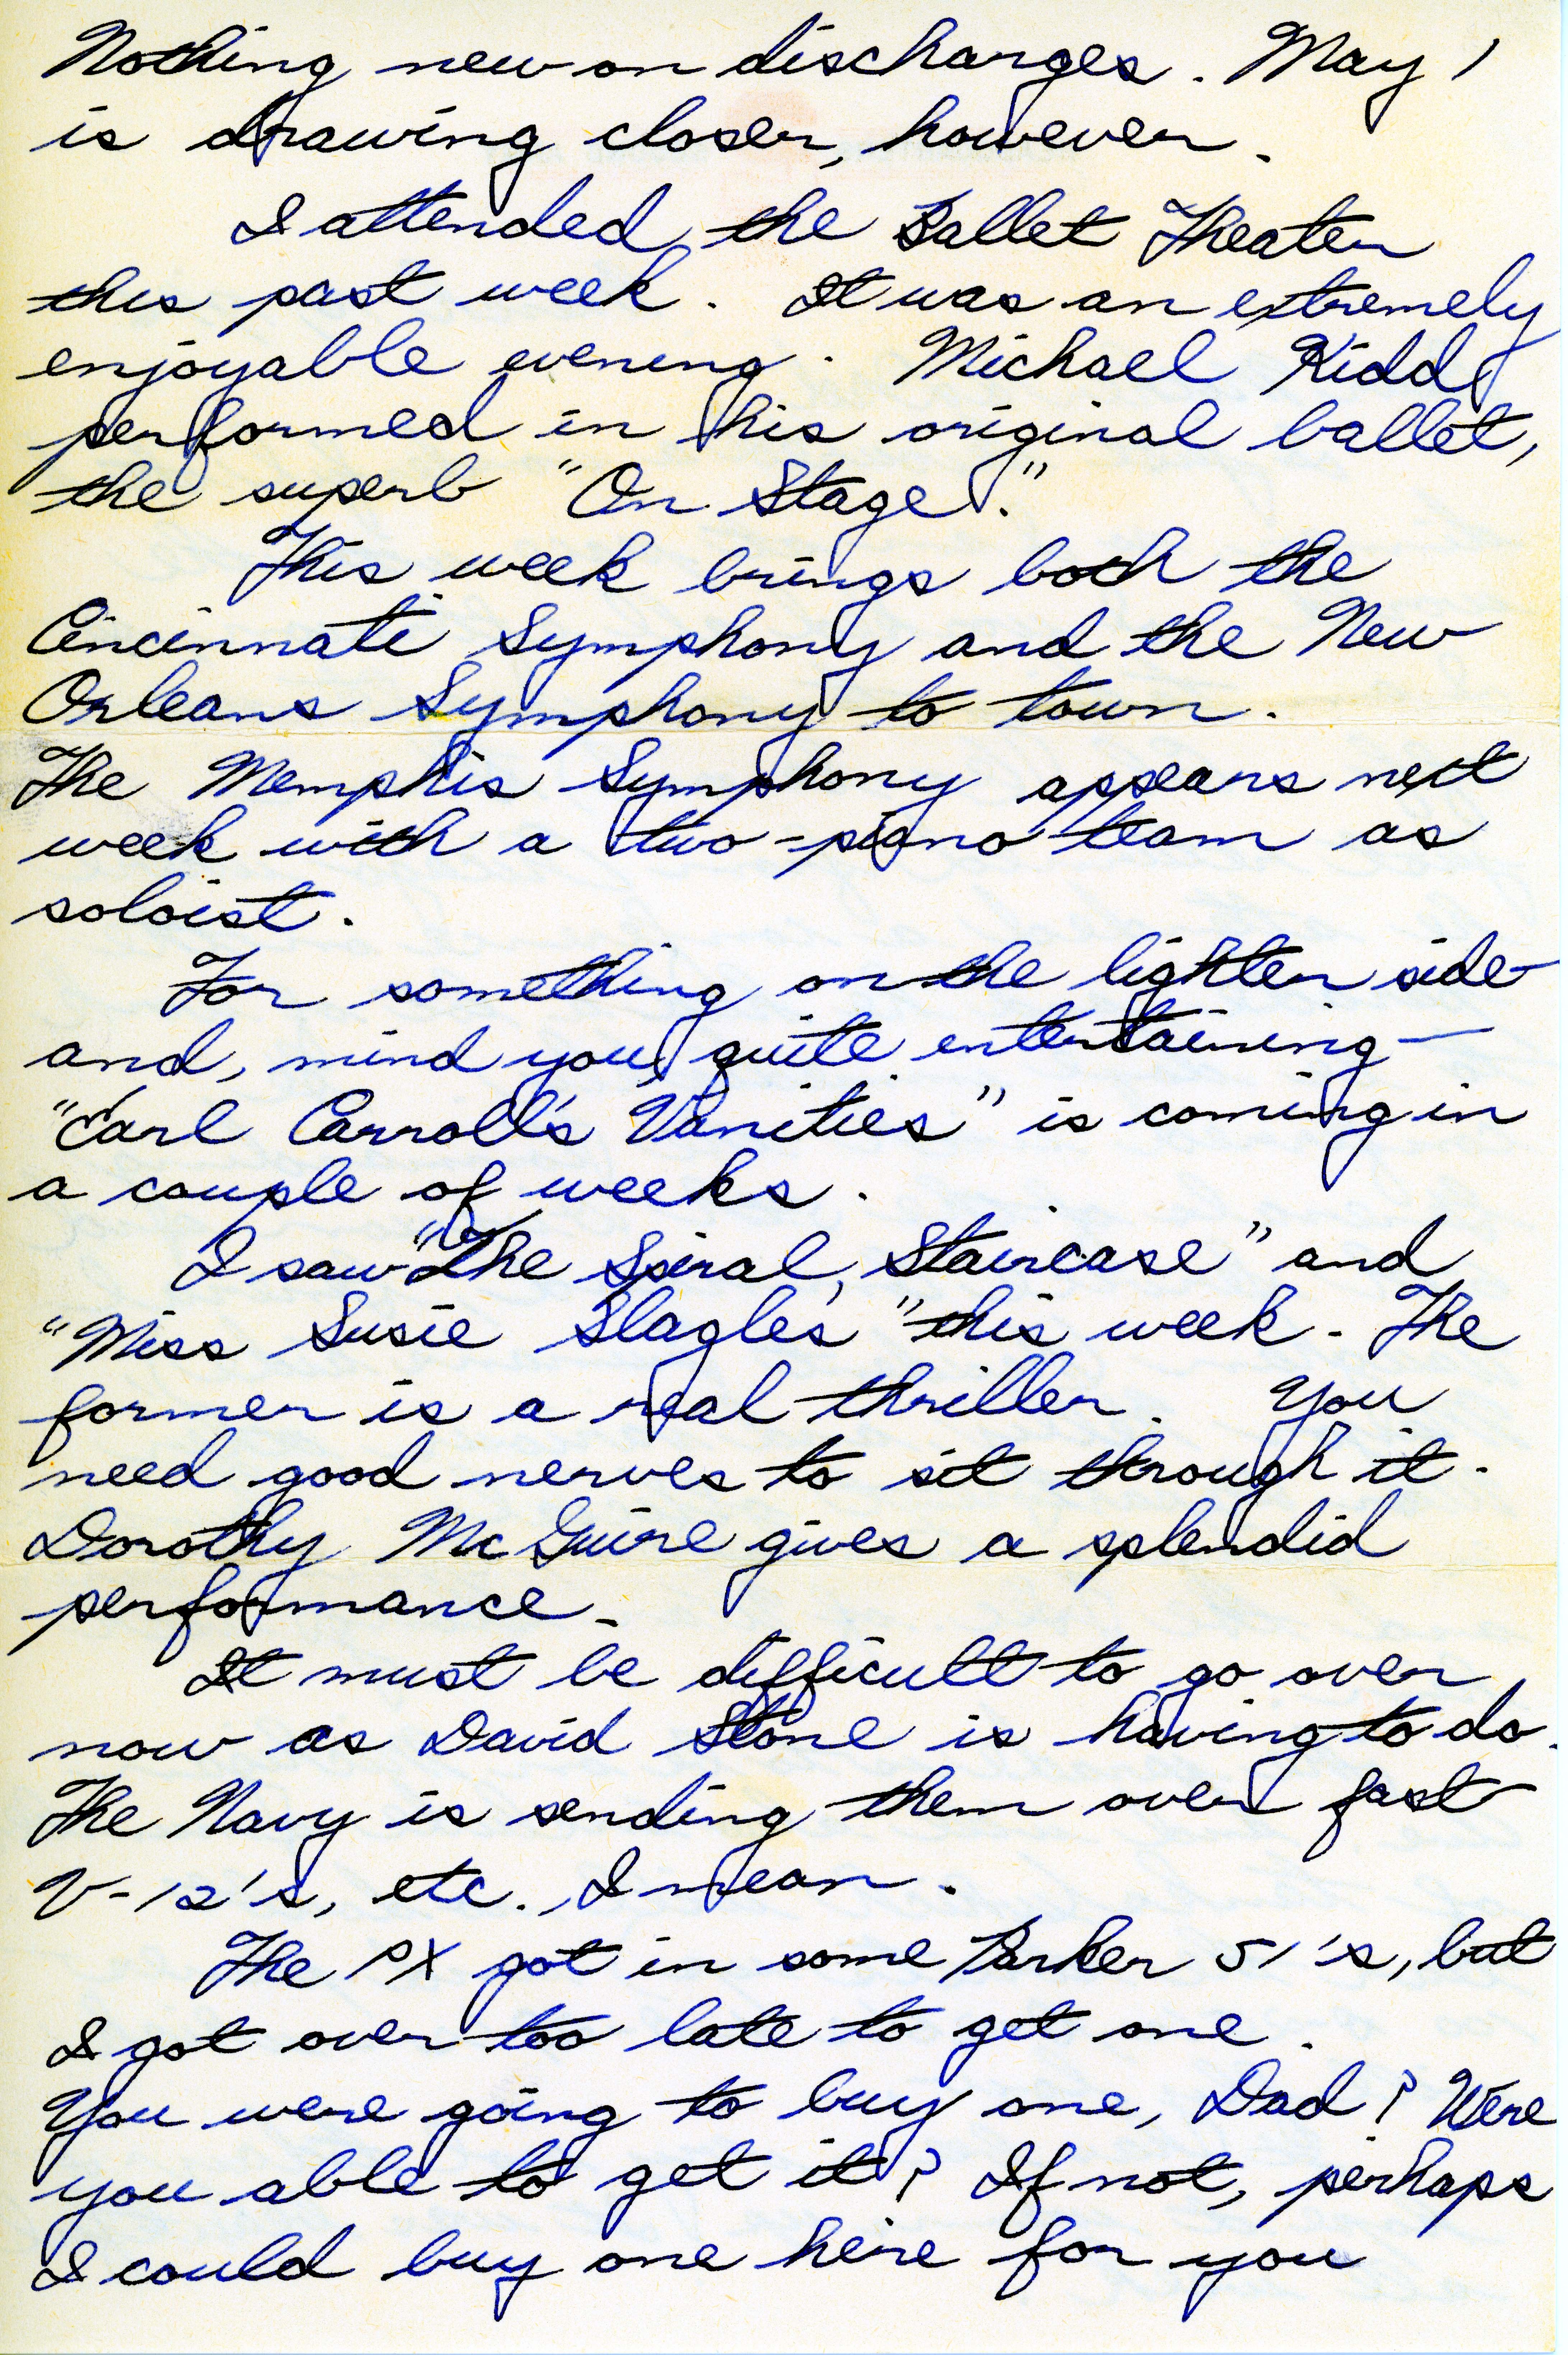 Nothing new on discharges. May 1
is drawing closer, however.
I attended the Ballet Theater
this past week. It was an extremely
enjoyable evening. Michael Kidd
performed in his original ballet,
the superb "On Stage."
This week brings both the
Cincinnati Symphony and the New
Orleans Symphony to town.
The Memphis Symphony appears next
week with a two-piano team as
soloist.
For something on the lighter side
and, mind you, quite entertaining—
"Earl Carroll's Vanities" is coming in
a couple of weeks.
I saw "The Spiral Staircase" and
"Miss Susie Slagle's" this week. The
former is a real thriller. You
need good nerves to sit through it.
Dorothy McGuire gives a splendid
performance.
It must be difficult to go over
now as David Stone is having to do.
The Navy is sending them over fast
V-12's, etc., I mean.
The PX got in some Parker 51's, but
I got over too late to get one.
You were going to buy one, Dad? Were
you able to get it? If not, perhaps
I could buy one here for you